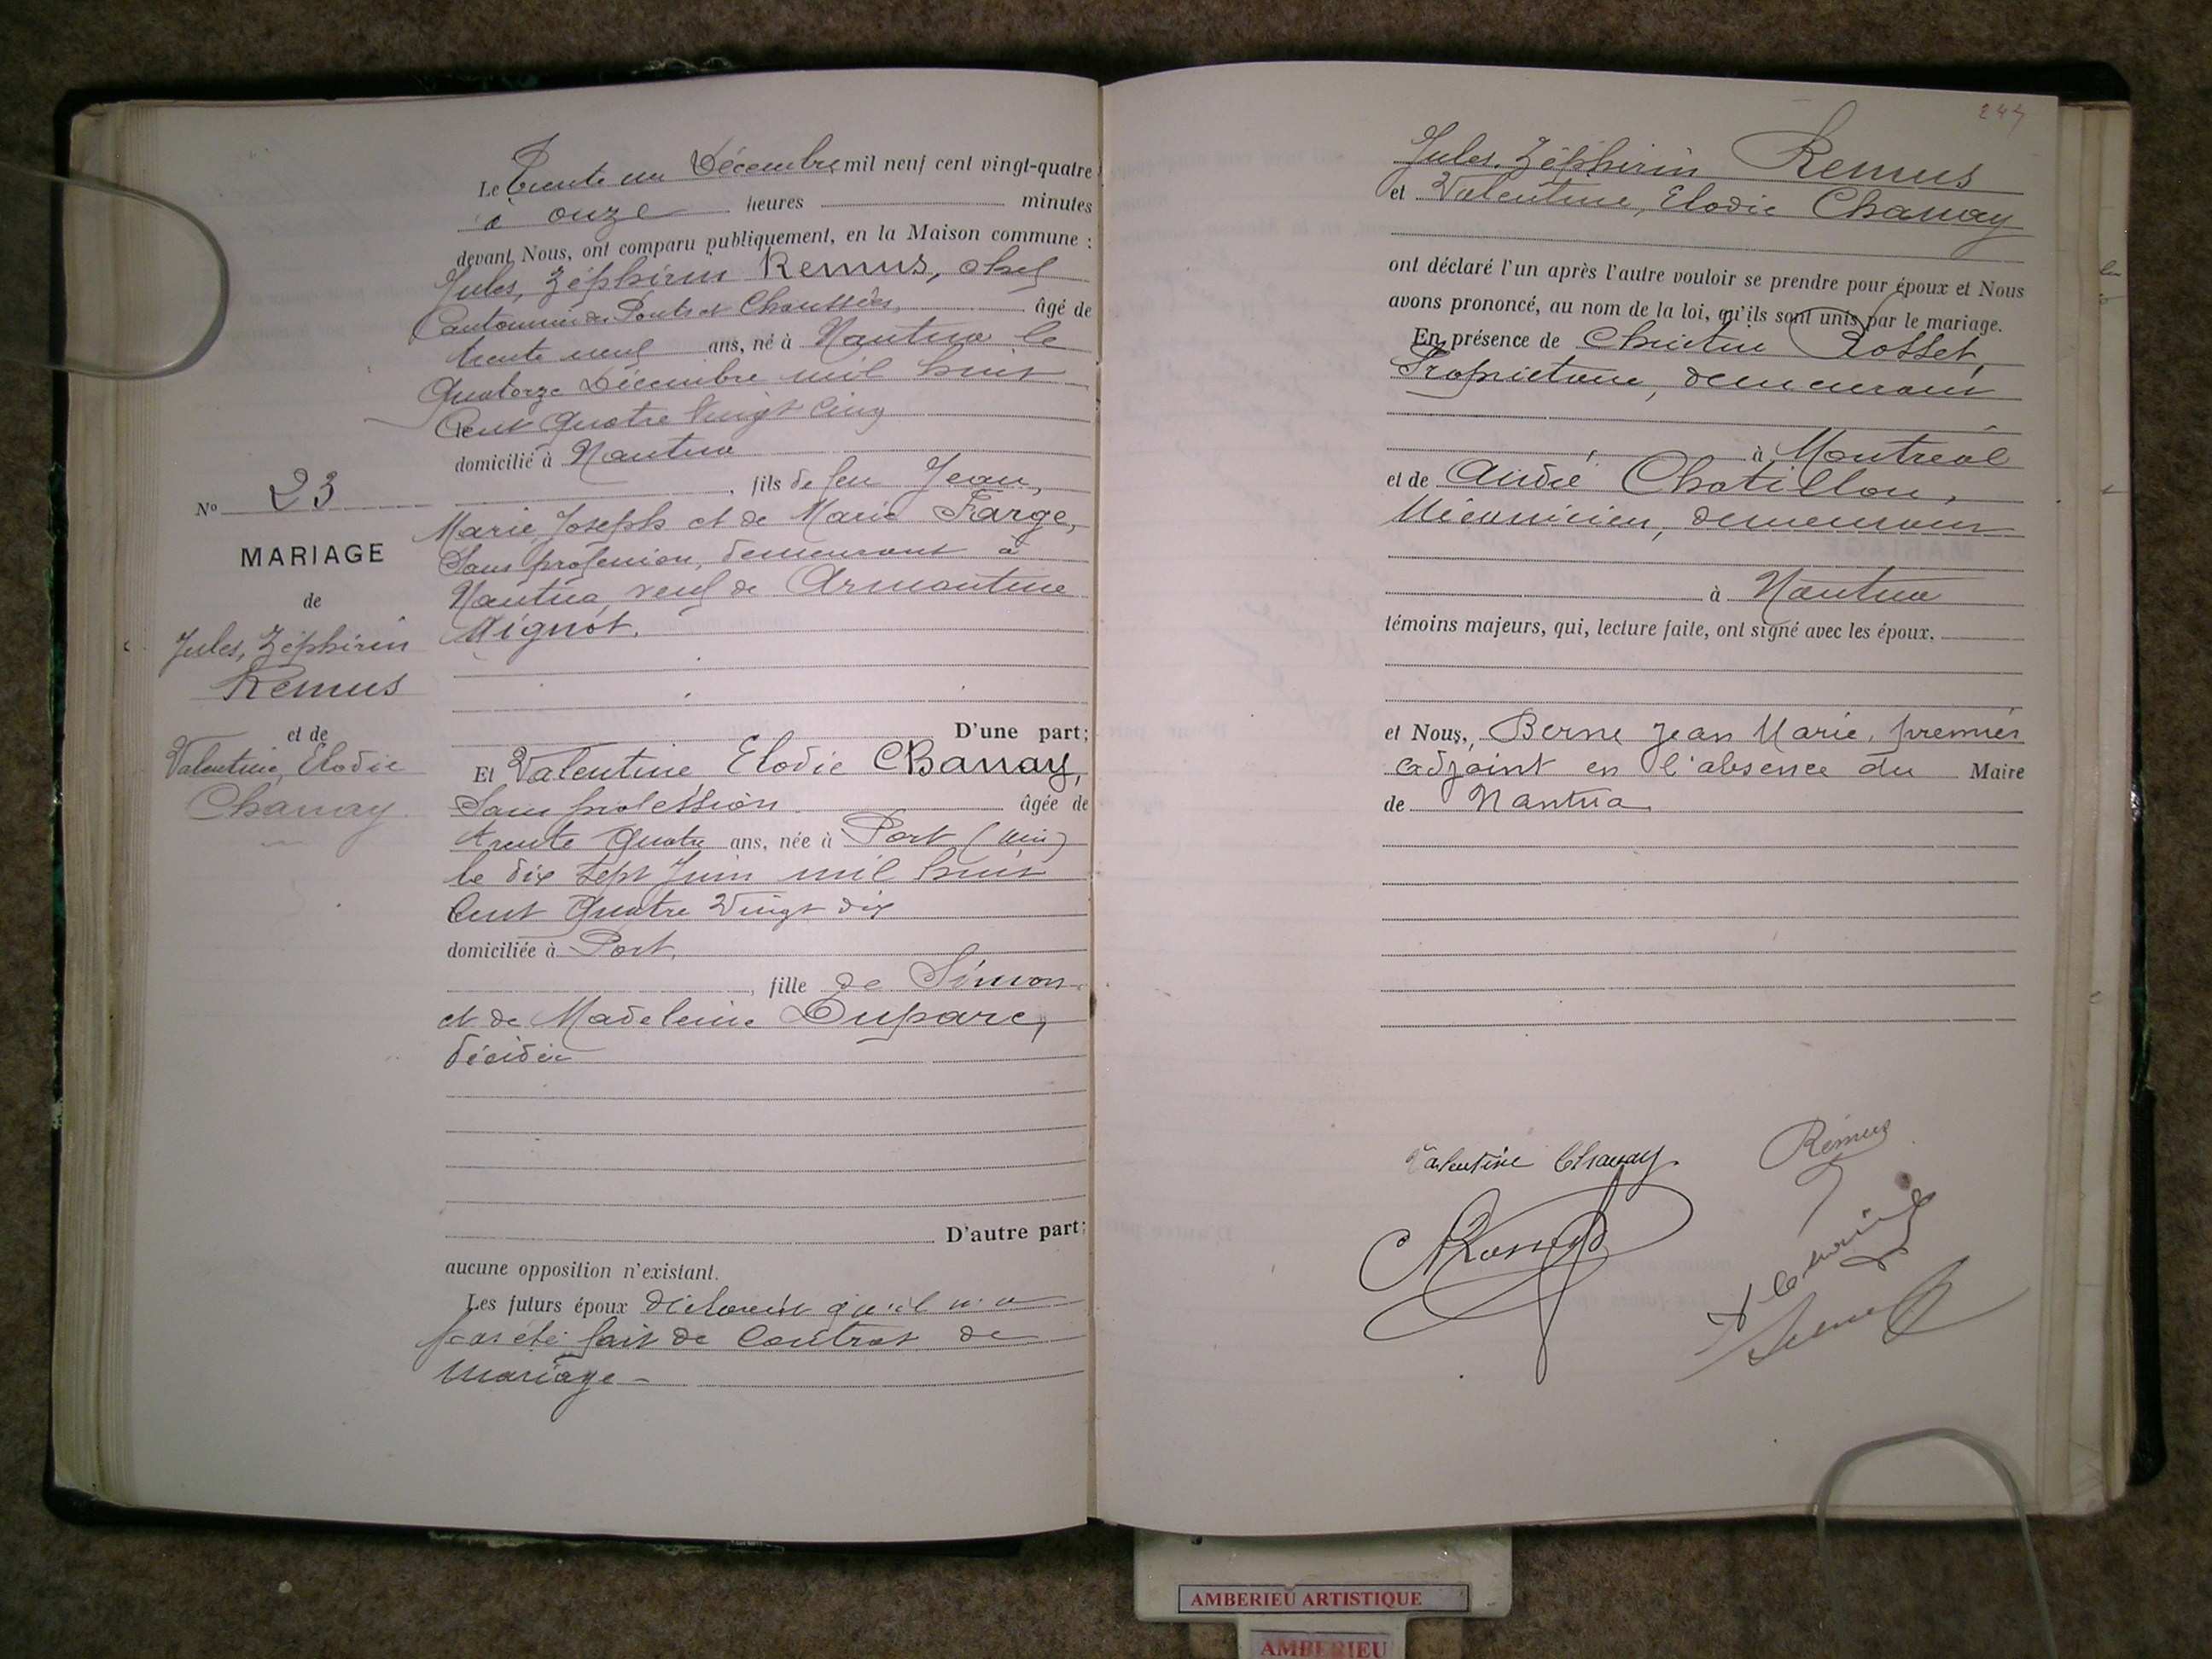 Le Trente un Décembre mil neuf cent vingt-quatre
à onze heures minutes
devant Nous, ont comparu publiquement, en la Maison commune :
Jules, Zéphirin Remus, chef
Cantonnier des Ponts et Chaussées, âgé de
trente neuf ans, né à Nantua le
Quatorze Décembre mil huit
Cent Quatre Vingt Cinq
domicilié à Nantua
, fils de feu Jean,
Marie, Joseph et de Marie Farge,
Sans profession, demeurant à
Nantua, veuf de Armantine
Mignot.
D'une part;
Et Valentine Elodie Chanay,
Sans profession âgée de
trente Quatre ans, née à Port (Ain)
le dix sept Juin mil huit
Cent Quatre Vingt dix
domiciliée à Port,
, fille de Simon
et de Madeleine Duparc,
décédée
D'autre part;
aucune opposition n'existant.
Les futurs époux déclarent qu'il n'a
pas été fait de Contrat de
mariage -
No 23
MARIAGE
de
Jules, Zéphirin
Remus
et de
Valentine, Elodie
Chanay.
Jules, Zéphirin Remus
et Valentine, Elodie Chanay
ont déclaré l'un après l'autre vouloir se prendre pour époux et Nous
avons prononcé, au nom de la loi, qu'ils sont unis par le mariage.
En présence de Rosset,
Propriétaire, demeurant
à Montréal
et de André Chatillon,
Mécanicien, demeurant
à Nantua
témoins majeurs, qui, lecture faite, ont signé avec les époux.
et Nous, Berne Jean Marie, premier
adjoint en l'absence du Maire
de Nantua
Valentine Chanay
Rémus
AMBERIEU ARTISTIQUE
AMBERIEU